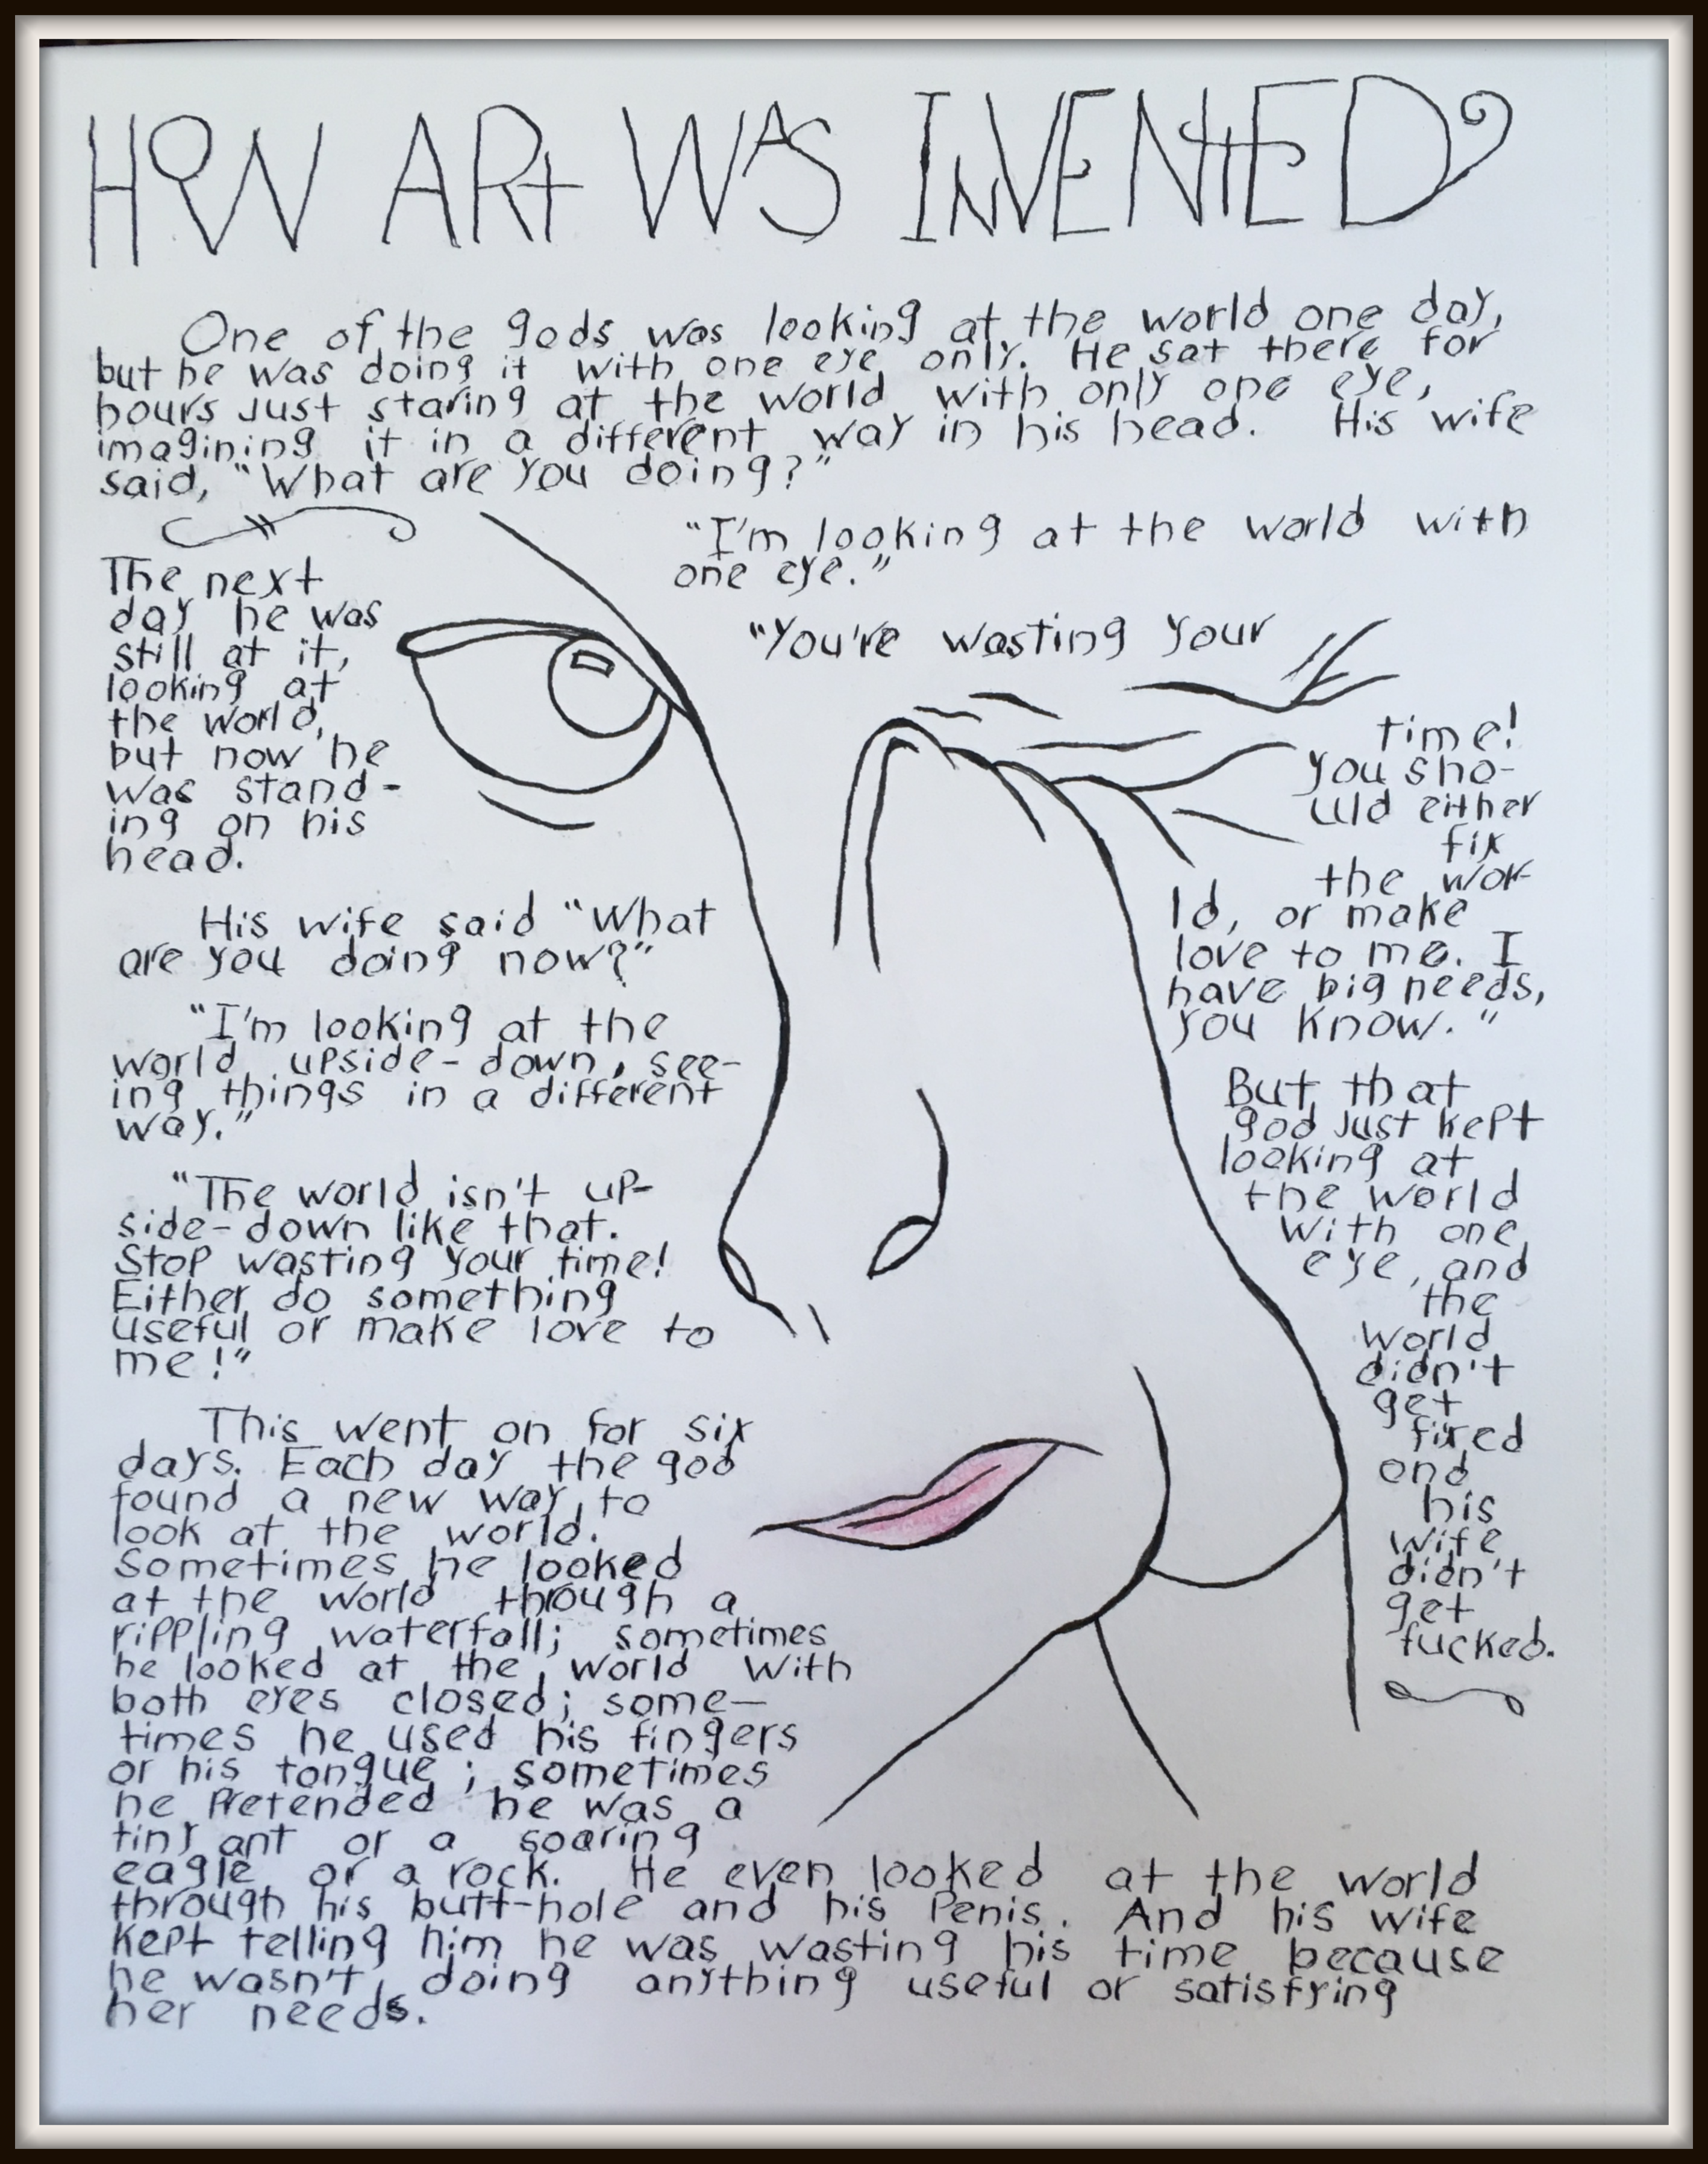 HOW ARt WAS INVENtED
One of the gods was looking at the world one day,
but he was doing it with one eye only. He sat there for
hours just staring at the world with only one eye,
imagining it in a different way in his head. His wife
said, "What are you doing?"
"I'm looking at the world with
one eye."
"You're wasting your
time!
You sho-
uld either
fix
the wor-
ld, or make
love to me. I
have big needs,
you know."
But that
god just kept
looking at
the world
with one
eye, and
the
world
didn't
get
fixed
and
his
wife
didn't
get
fucked.
The next
day he was
still at it,
looking at
the world,
but now he
was stand-
ing on his
head.
His wife said "What
are you doing now?"
"I'm looking at the
world upside-down, see-
ing things in a different
way."
"The world isn't up-
side-down like that.
Stop wasting your time!
Either do something
useful or make love to
me!"
This went on for six
days. Each day the god
found a new way to
look at the world.
Sometimes he looked
at the world through a
rippling waterfall; sometimes
he looked at the world with
both eyes closed; some-
times he used his fingers
or his tongue; sometimes
he pretended he was a
tiny ant or a soaring
eagle or a rock. He even looked at the world
through his butt-hole and his penis. And his wife
kept telling him he was wasting his time because
he wasn't doing anything useful or satisfying
her needs.